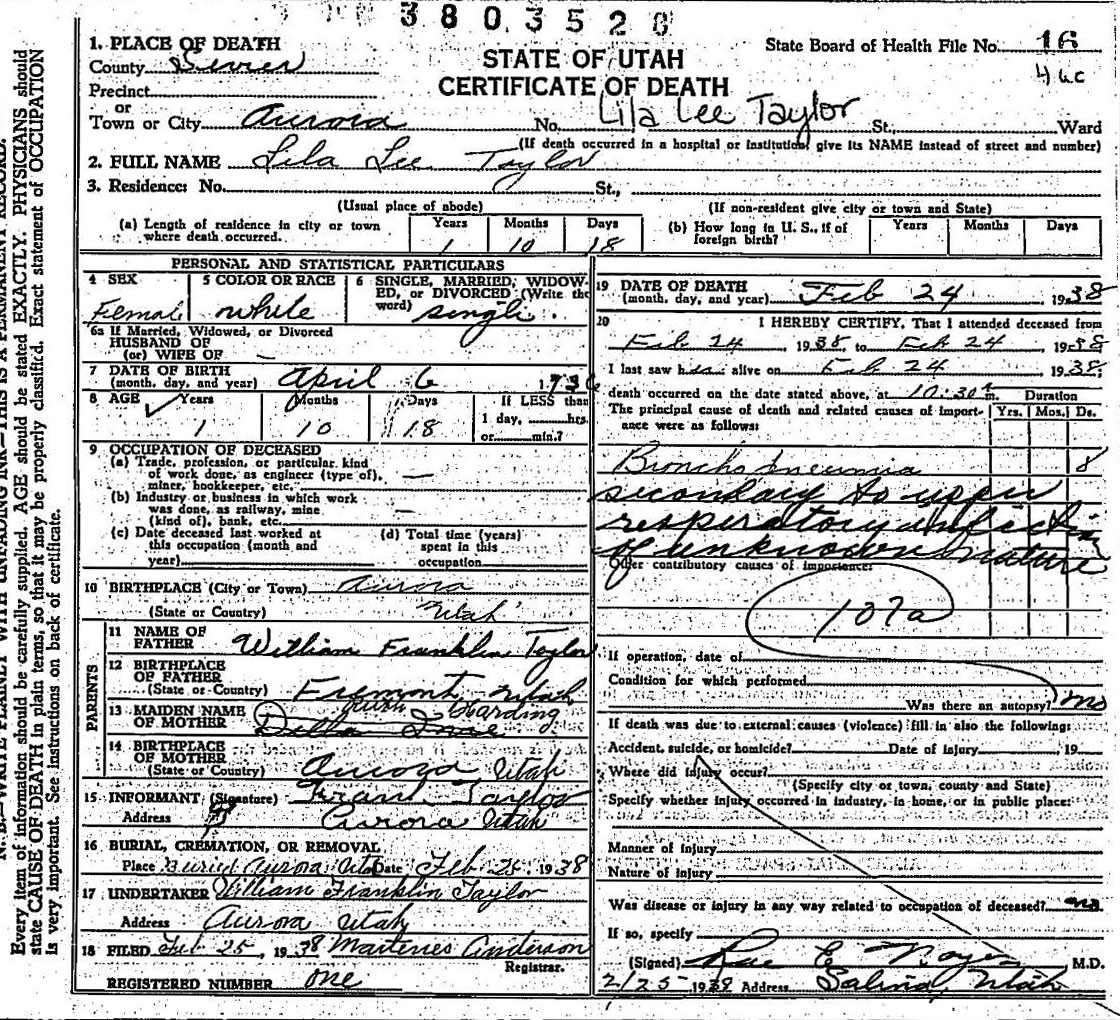 3803526
1. PLACE OF DEATH
County Sevier
Precinct
or
Town or City Aurora No. Lila Lee Taylor St., Ward
STATE OF UTAH
CERTIFICATE OF DEATH
State Board of Health File No. 16
(If death occurred in a hospital or institution, give its NAME instead of street and number)
2. FULL NAME Lila Lee Taylor
3. Residence: No. St.,
(Usual place of abode) (If non-resident give city or town and State)
(a) Length of residence in city or town where death occurred. Years 1 Months 10 Days 18
(b) How long in U. S., if of foreign birth? Years Months Days
PERSONAL AND STATISTICAL PARTICULARS
4 SEX Female
5 COLOR OR RACE white
6 SINGLE, MARRIED, WIDOWED, or DIVORCED (Write the word) single.
6a If Married, Widowed, or Divorced
HUSBAND OF
(or) WIFE OF –
7 DATE OF BIRTH
(month, day, and year) April 6 1936
8 AGE Years Months Days If LESS than
1 10 18 1 day, hrs.
or min.?
9 OCCUPATION OF DECEASED
(a) Trade, profession, or particular kind
of work done, as engineer (type of), —
miner, bookkeeper, etc.
(b) Industry or business in which work
was done, as railway, mine —
(kind of), bank, etc.
(c) Date deceased last worked at
this occupation (month and
year)
(d) Total time (years)
spent in this
occupation
10 BIRTHPLACE (City or Town) Aurora
(State or Country) Utah
PARENTS
11 NAME OF
FATHER William Franklin Taylor
12 BIRTHPLACE
OF FATHER
(State or Country) Fremont Utah
13 MAIDEN NAME Harding
OF MOTHER Della
14 BIRTHPLACE
OF MOTHER
(State or Country) Aurora Utah
15 INFORMANT (Signature) Frank Taylor
Address Aurora Utah
16 BURIAL, CREMATION, OR REMOVAL
Place Buried Aurora Utah Date Feb 25, 1938
17 UNDERTAKER William Franklin Taylor
Address Aurora Utah
18 FILED Feb 25, 1938 Anderson
Registrar.
REGISTERED NUMBER one
19 DATE OF DEATH
(month, day, and year) Feb 24 1938
20 I HEREBY CERTIFY, That I attended deceased from
Feb 24 1938 to Feb 24 1938
I last saw h alive on Feb 24 1938;
death occurred on the date stated above, at 10:30 m. Duration
The principal cause of death and related causes of importance were as follows: Yrs. Mos. Ds.
Broncho pneumonia 8
secondary to upper
respiratory infection
of unknown nature
Other contributory causes of importance:
107a
If operation, date of
Condition for which performed
Was there an autopsy? no
If death was due to external causes (violence) fill in also the following:
Accident, suicide, or homicide? Date of injury 19
Where did injury occur?
(Specify city or town, county and State)
Specify whether injury occurred in industry, in home, or in public place:
Manner of injury
Nature of injury
Was disease or injury in any way related to occupation of deceased? no
If so, specify
(Signed) Rae E. Noyes M.D.
2/25 1938 Address Salina, Utah
N. B.—WRITE PLAINLY WITH UNFADING INK—THIS IS A PERMANENT RECORD.
Every item of information should be carefully supplied. AGE should be stated EXACTLY. PHYSICIANS should
state CAUSE OF DEATH in plain terms, so that it may be properly classified. Exact statement of OCCUPATION
is very important. See instructions on back of certificate.